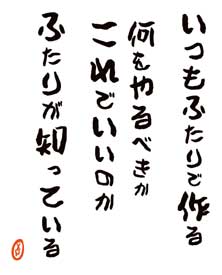 いつもふたりで作る
何をやるべきか
これでいいのか
ふたりが知っている